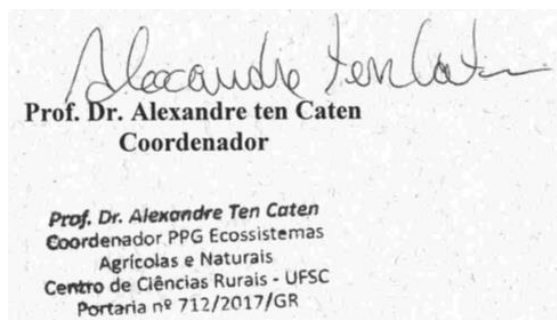 Alexandre ten Caten
Prof. Dr. Alexandre ten Caten
Coordenador
Prof. Dr. Alexandre Ten Caten
Coordenador PPG Ecossistemas
Agrícolas e Naturais
Centro de Ciências Rurais - UFSC
Portaria nº 712/2017/GR